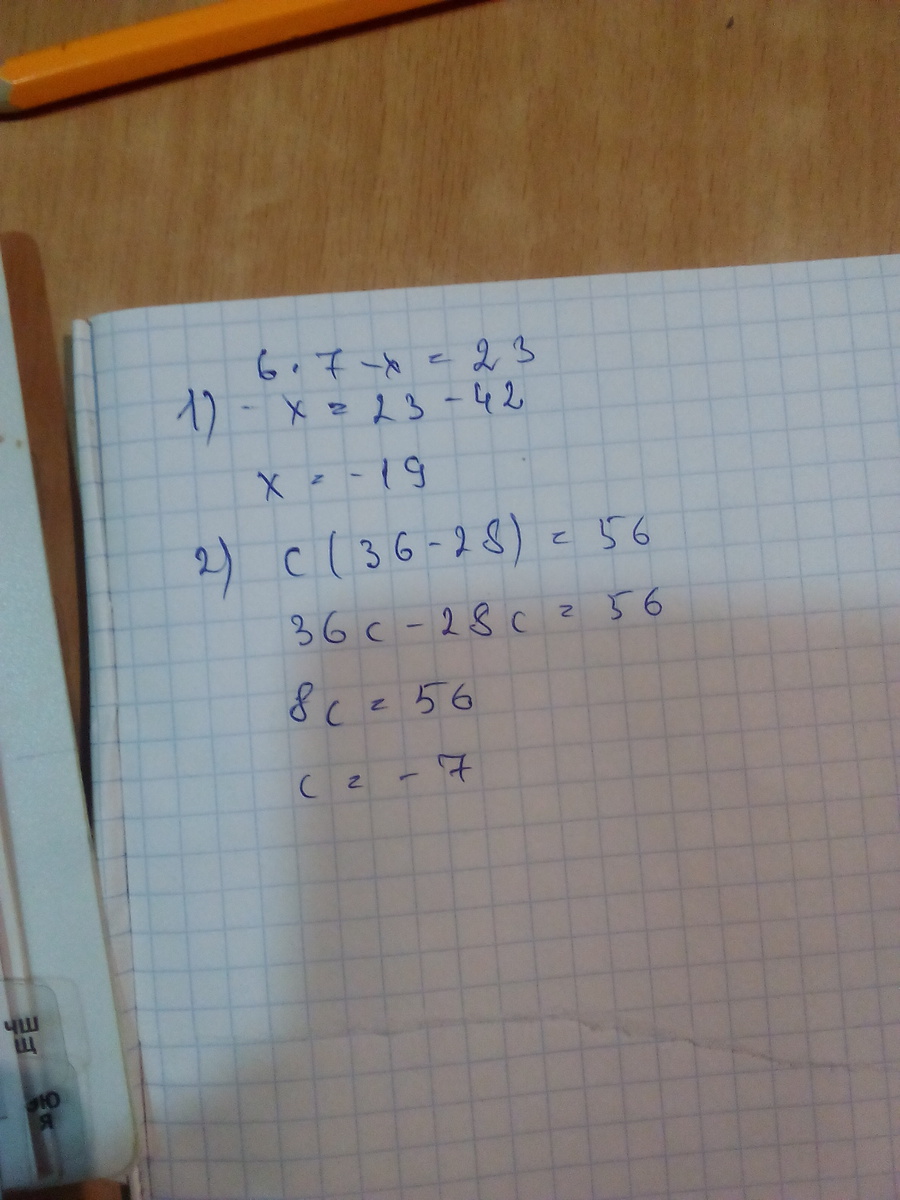 6 · 7 - x = 23
1) - x = 23 - 42
x = - 19
2) c (36 - 28) = 56
36c - 28c = 56
8c = 56
c = - 7
ЧШ
Щ
ЭЮ
Я